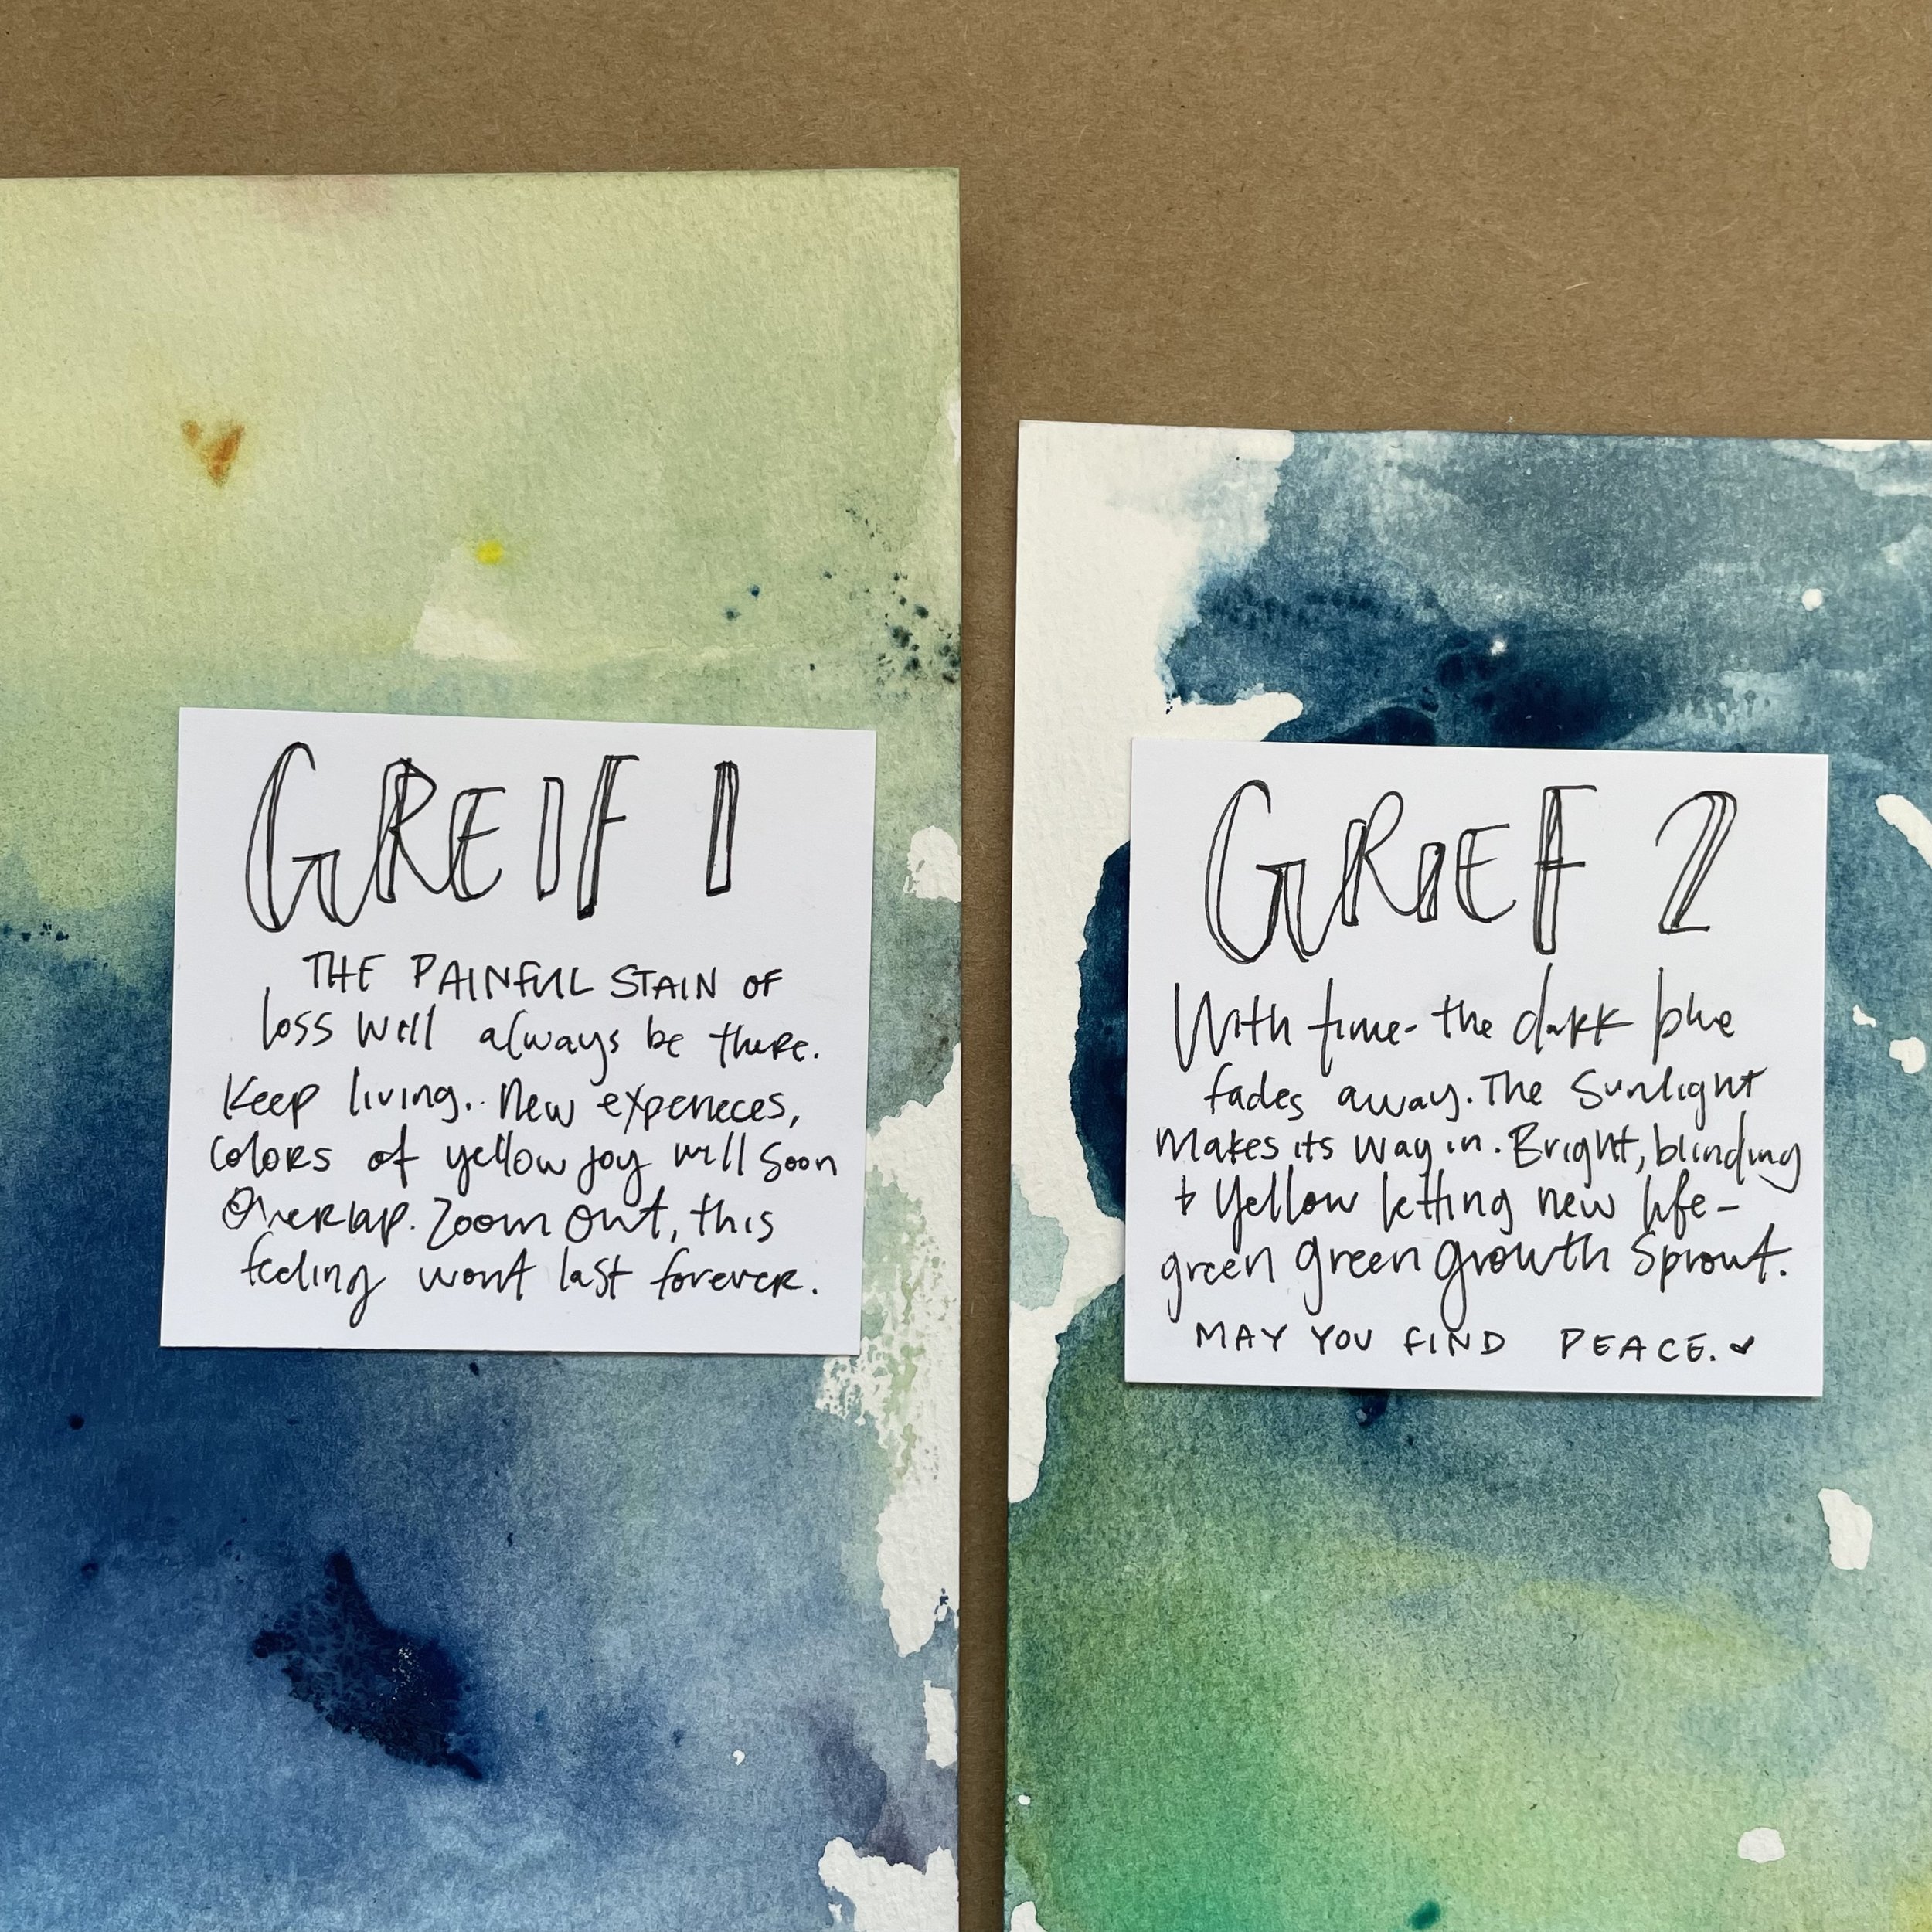 GREIF 1
THE PAINFUL STAIN OF
loss will always be there.
Keep living. New expereces,
colors of yellow joy will soon
Overlap. Zoom out, this
feeling wont last forever.
GRIEF 2
With time- the dark blue
fades away. The Sunlight
makes its way in. Bright, blinding
+ Yellow letting new life-
green green growth Sprout.
MAY YOU FIND PEACE. ♥